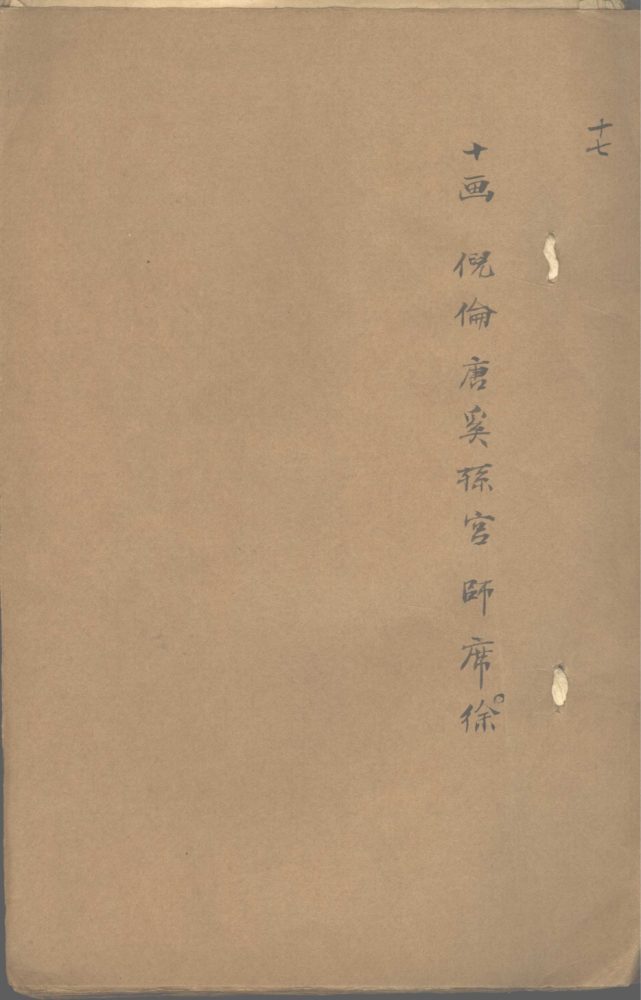 十七
十画 倪倫唐奚孫宮師席徐